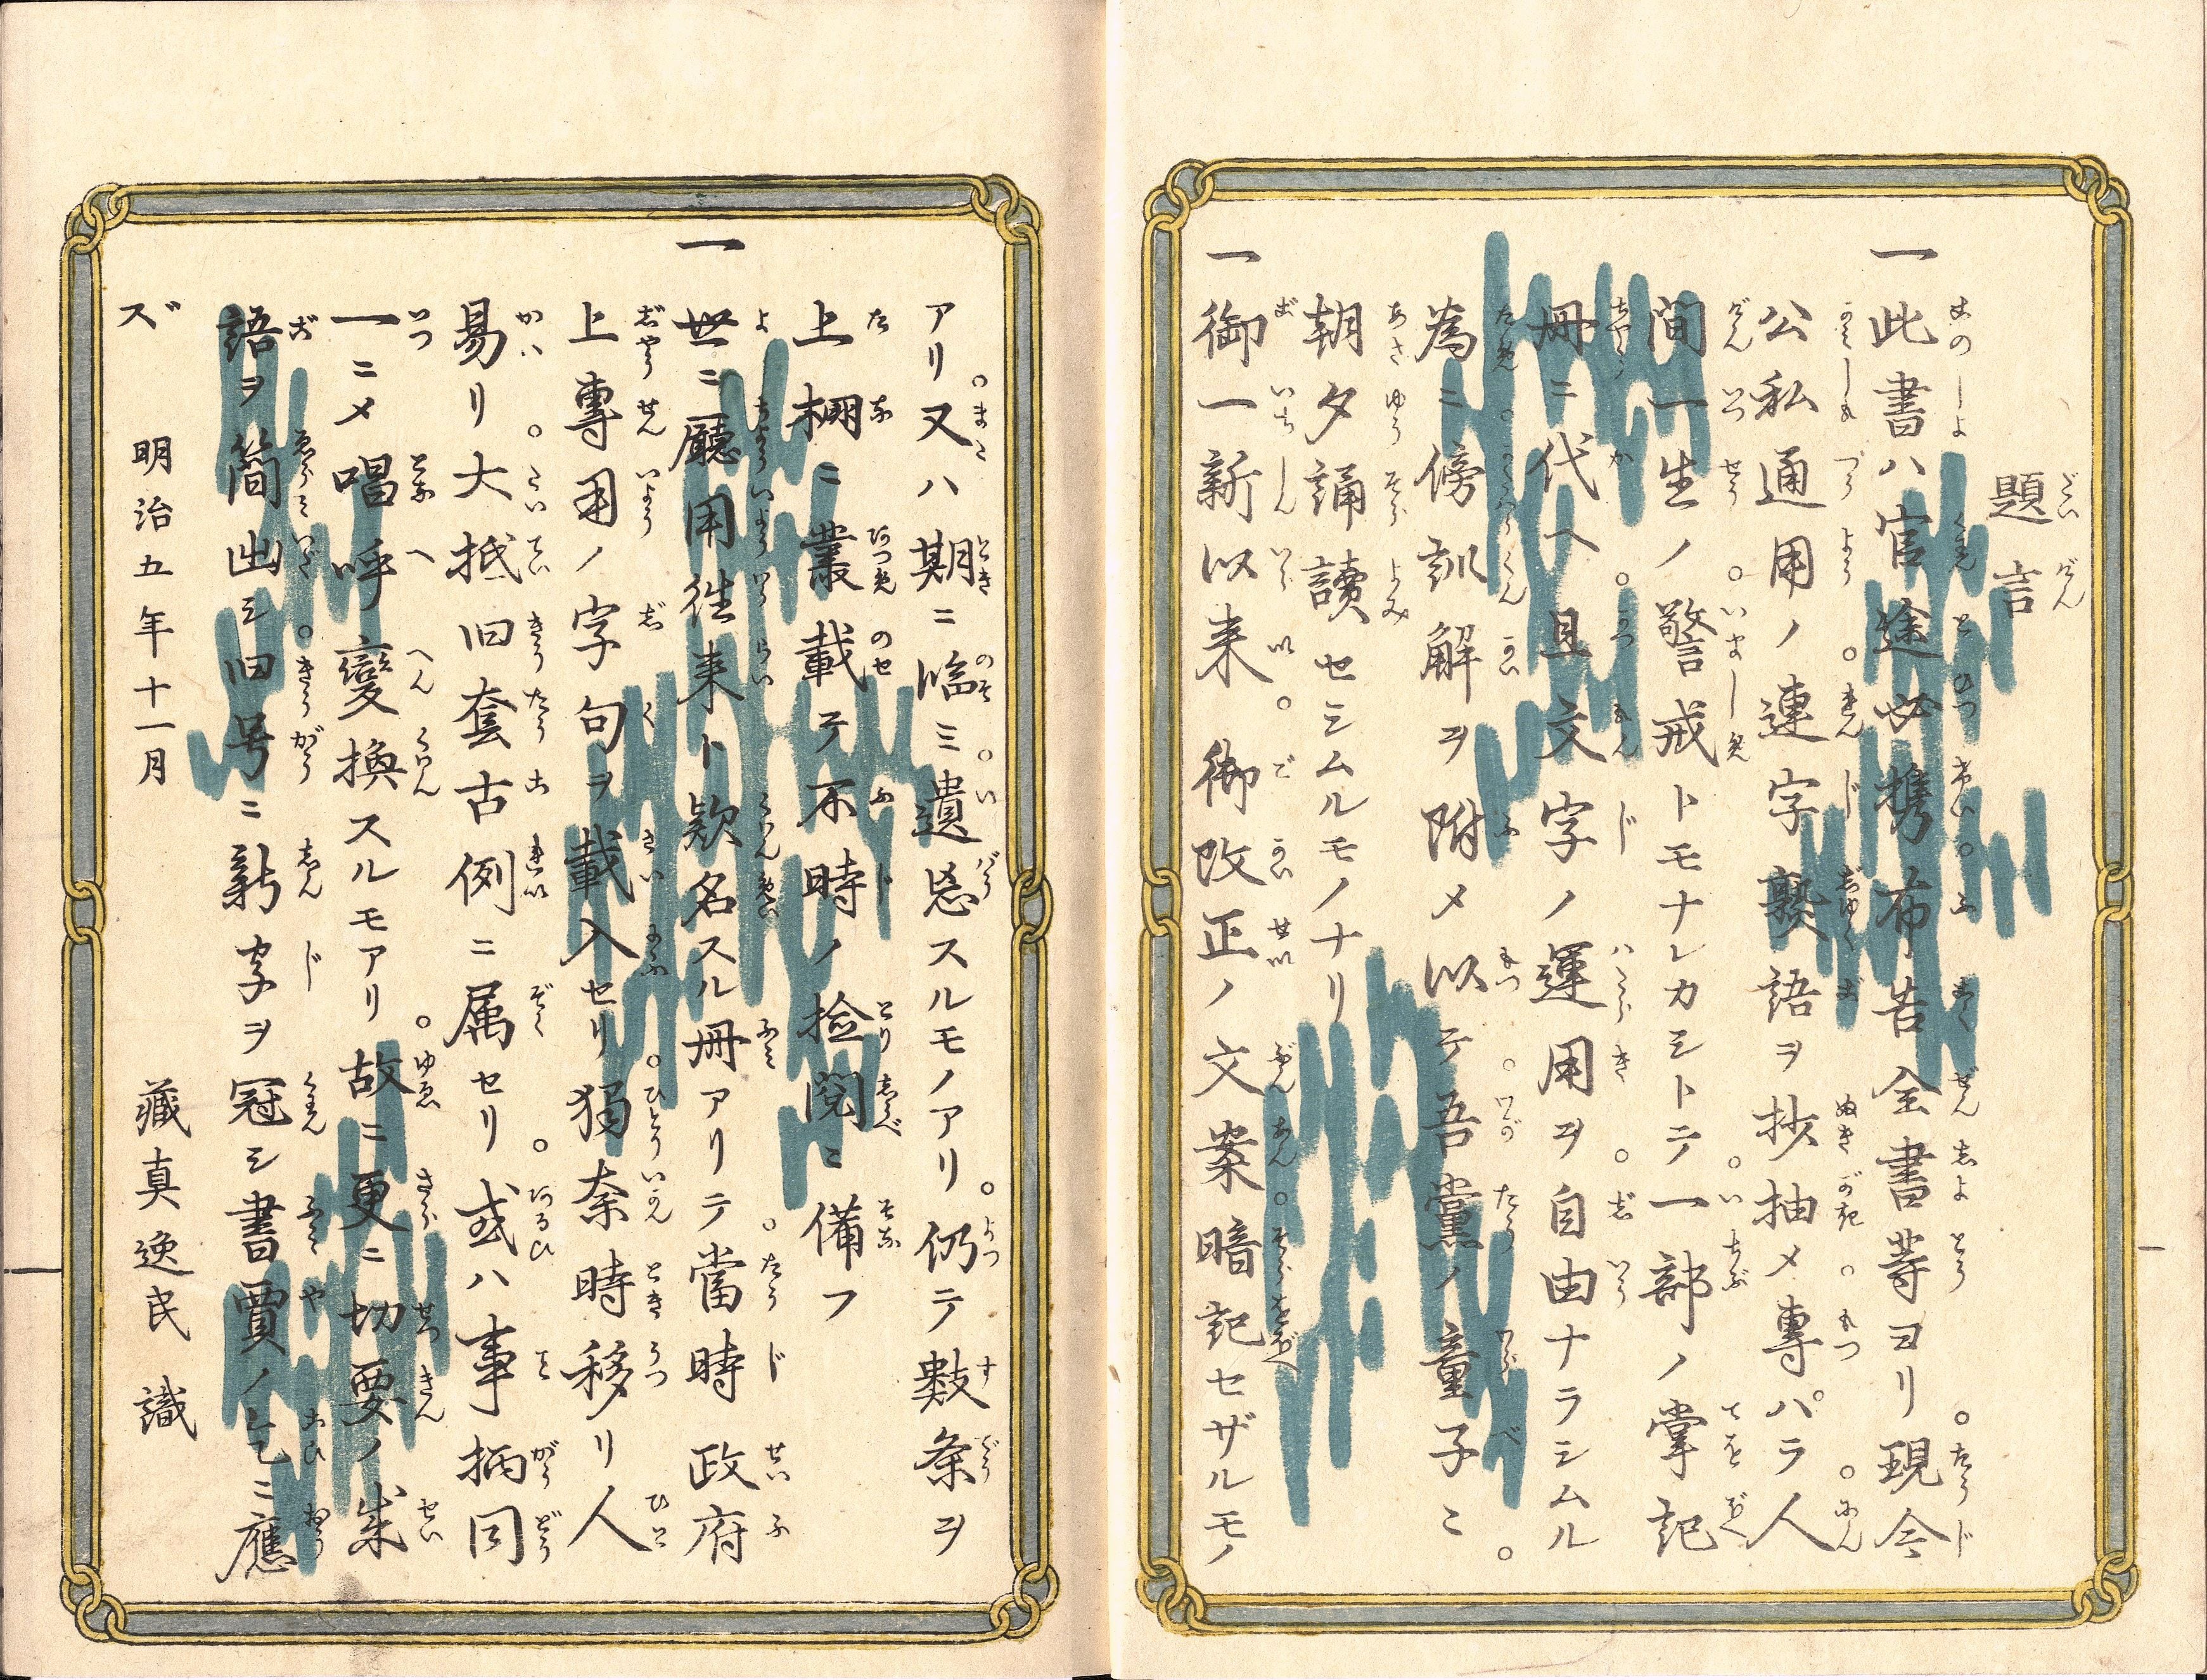 題言
一此書ハ官途必携布告全書等ヨリ現今
公私通用ノ連字熟語ヲ抄抽メ專パラ人
間一生ノ警戒トモナレカシトテ一部ノ掌記
冊ニ代ヘ且文字ノ運用ヲ自由ナラシムル
為ニ傍訓解ヲ附メ以テ吾黨ノ童子ニ
朝夕誦讀セシムルモノナリ
一御一新以来御改正ノ文案暗記セザルモノ
アリ又ハ期ニ臨ミ遺忘スルモノアリ仍テ數条ヲ
上棚ニ叢載テ不時ノ捡閲ニ備フ
一世ニ廳用徃来ト款名スル冊アリテ當時政府
上專用ノ字句ヲ載入セリ猲奈時移リ人
易リ大抵旧套古例ニ属セリ或ハ事柄同
一ニメ唱呼變換スルモアリ故ニ更ニ切要ノ成
語ヲ簡出シ旧号ニ新字ヲ冠シ書賈ノ乞ニ應
ズ
明治五年十一月
藏真逸民識